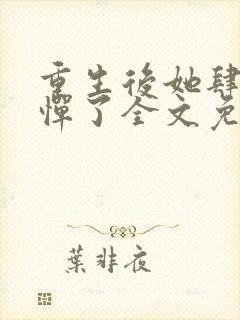 重生後她肆
憚了全文免
葉非夜